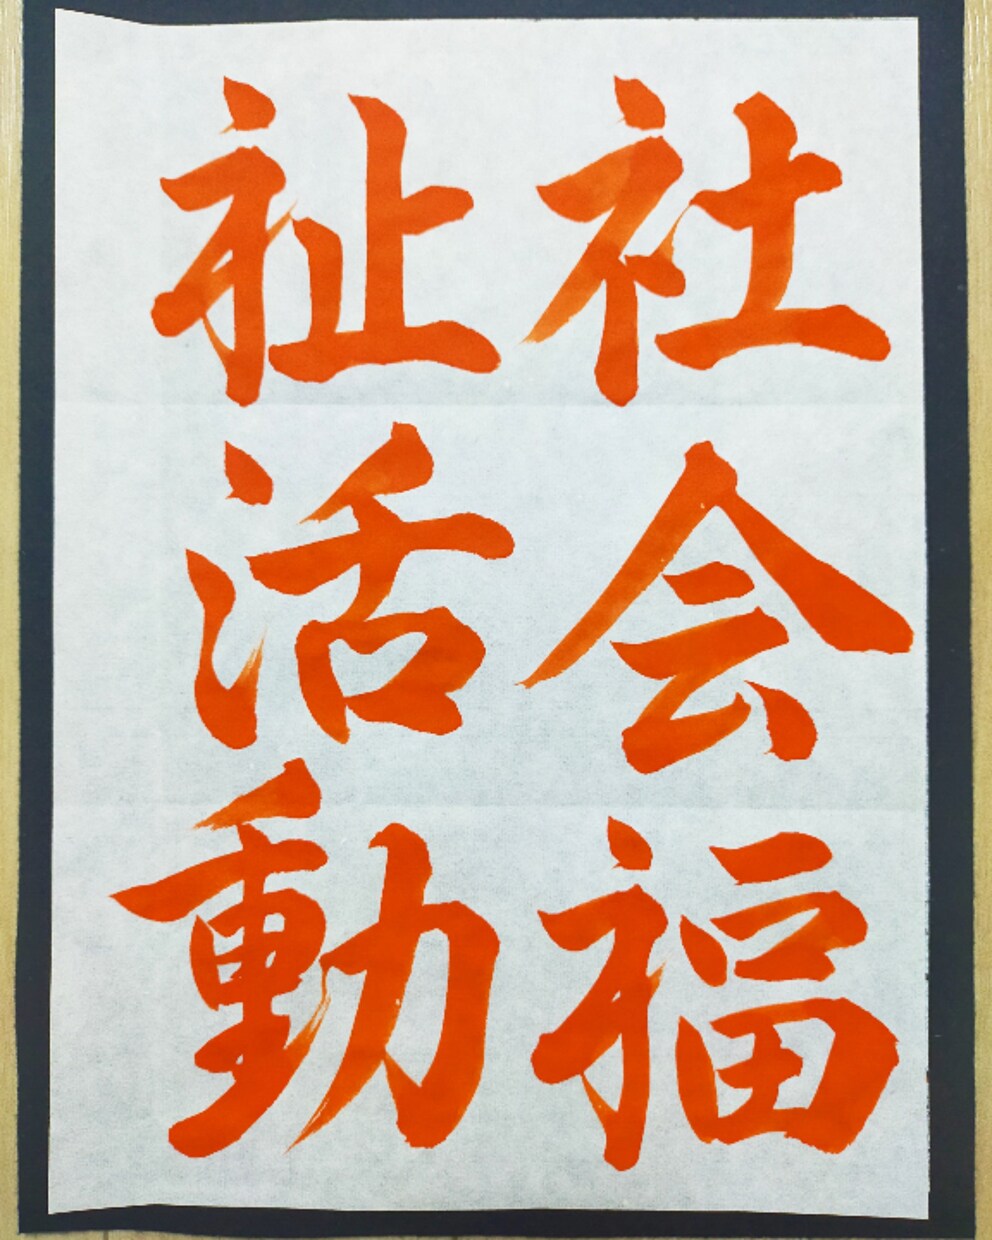 社会福
祉活動